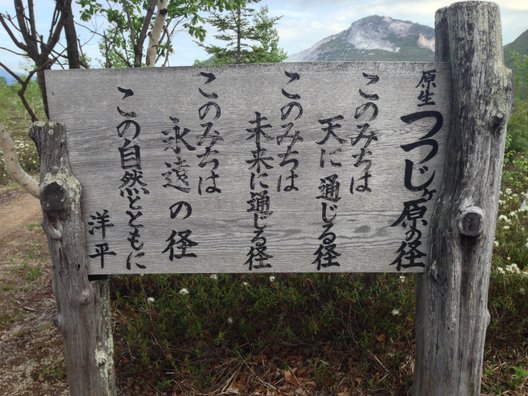 原生 つつじヶ原の径
このみちは
天に通じる径
このみちは
未来に通じる径
このみちは
永遠の径
この自然とともに
洋平